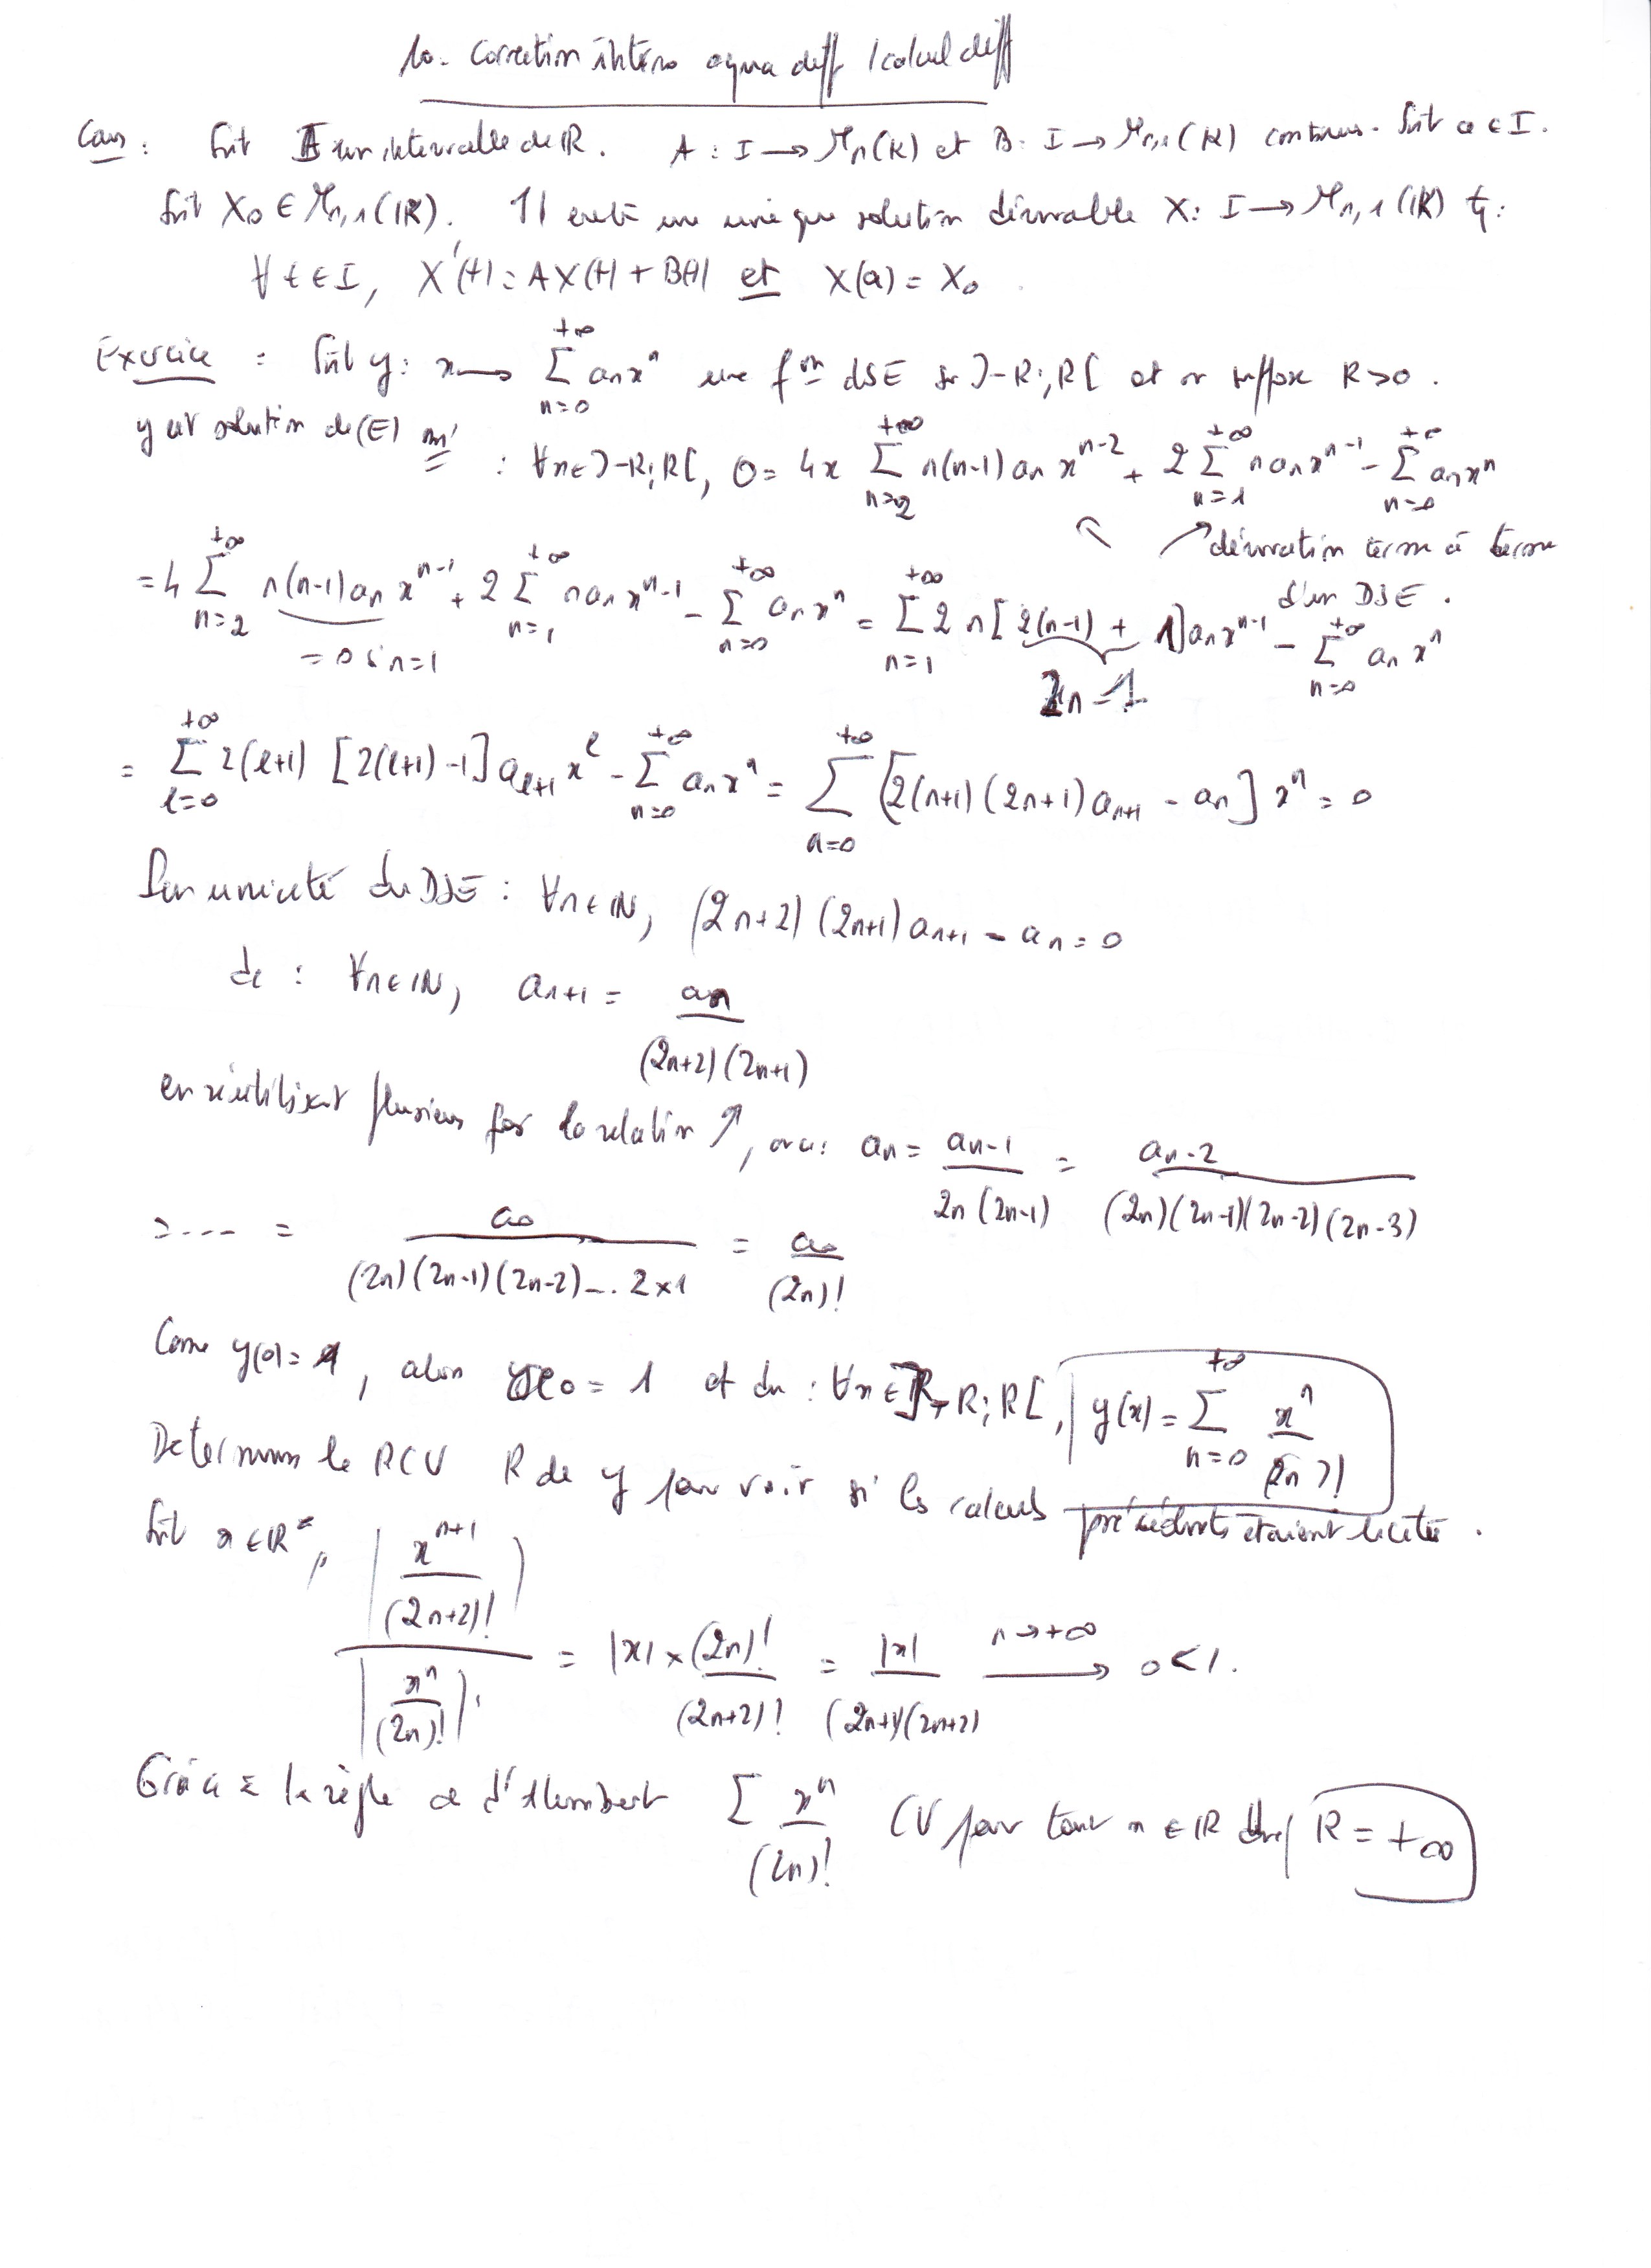 10. Correction intéro equa diff / calcul diff
Cours : Soit I un intervalle de ℝ. A : I → Mn(K) et B : I → Mn,1(K) continues. Soit a ∈ I.
Soit X0 ∈ Mn,1(K). Il existe une unique solution dérivable X : I → Mn,1(K) tq :
∀ t ∈ I, X'(t) = AX(t) + B(t) et X(a) = X0.
Exercice : Soit y : x → ∑_{n=0}^{+∞} an x^n une f^on dSE sr ]-R;R[ et on suppose R>0.
y est solution de (E) ssi : ∀x∈]-R;R[, 0 = 4x ∑_{n=2}^{+∞} n(n-1) an x^{n-2} + 2 ∑_{n=1}^{+∞} n an x^{n-1} - ∑_{n=0}^{+∞} an x^n
↖ ↗ dérivation terme à terme d'un DSE.
= 4 ∑_{n=2}^{+∞} n(n-1) an x^{n-1} + 2 ∑_{n=1}^{+∞} n an x^{n-1} - ∑_{n=0}^{+∞} an x^n = ∑_{n=1}^{+∞} 2 n [2(n-1) + 1] an x^{n-1} - ∑_{n=0}^{+∞} an x^n
= 0 si n=1 2n - 1
= ∑_{l=0}^{+∞} 2(l+1) [2(l+1)-1] a_{l+1} x^l - ∑_{n=0}^{+∞} an x^n = ∑_{n=0}^{+∞} [2(n+1)(2n+1) a_{n+1} - an] x^n = 0
Par unicité du DSE : ∀n∈ℕ, (2n+2)(2n+1) a_{n+1} - an = 0
dc : ∀n∈ℕ, a_{n+1} = an / ((2n+2)(2n+1))
en réutilisant plusieurs fois la relation ↗, on a : an = a_{n-1} / (2n(2n-1)) = a_{n-2} / ((2n)(2n-1)(2n-2)(2n-3))
= .... = a0 / ((2n)(2n-1)(2n-2)... 2×1) = a0 / (2n)!
Comme y(0) = 1, alors a0 = 1 et dc : ∀x∈]-R;R[, y(x) = ∑_{n=0}^{+∞} x^n / (2n)!
Determinons le RCV R de y pour voir si les calculs précédents étaient licites.
Soit x∈ℝ*, |x^{n+1} / (2n+2)!| / |x^n / (2n)!| = |x| × (2n)! / (2n+2)! = |x| / ((2n+1)(2n+2)) →^{n→+∞} 0 < 1.
Grâce à la règle de d'Alembert ∑ x^n / (2n)! CV pour tout x ∈ ℝ donc R = +∞